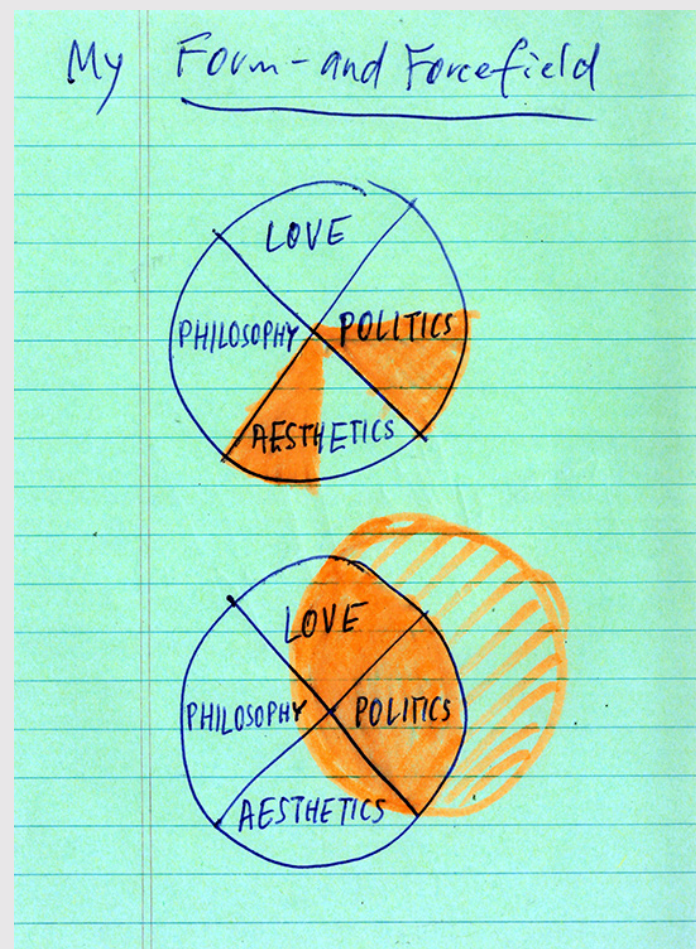 My Form-and Forcefield
LOVE
PHILOSOPHY POLITICS
AESTHETICS
LOVE
PHILOSOPHY POLITICS
AESTHETICS